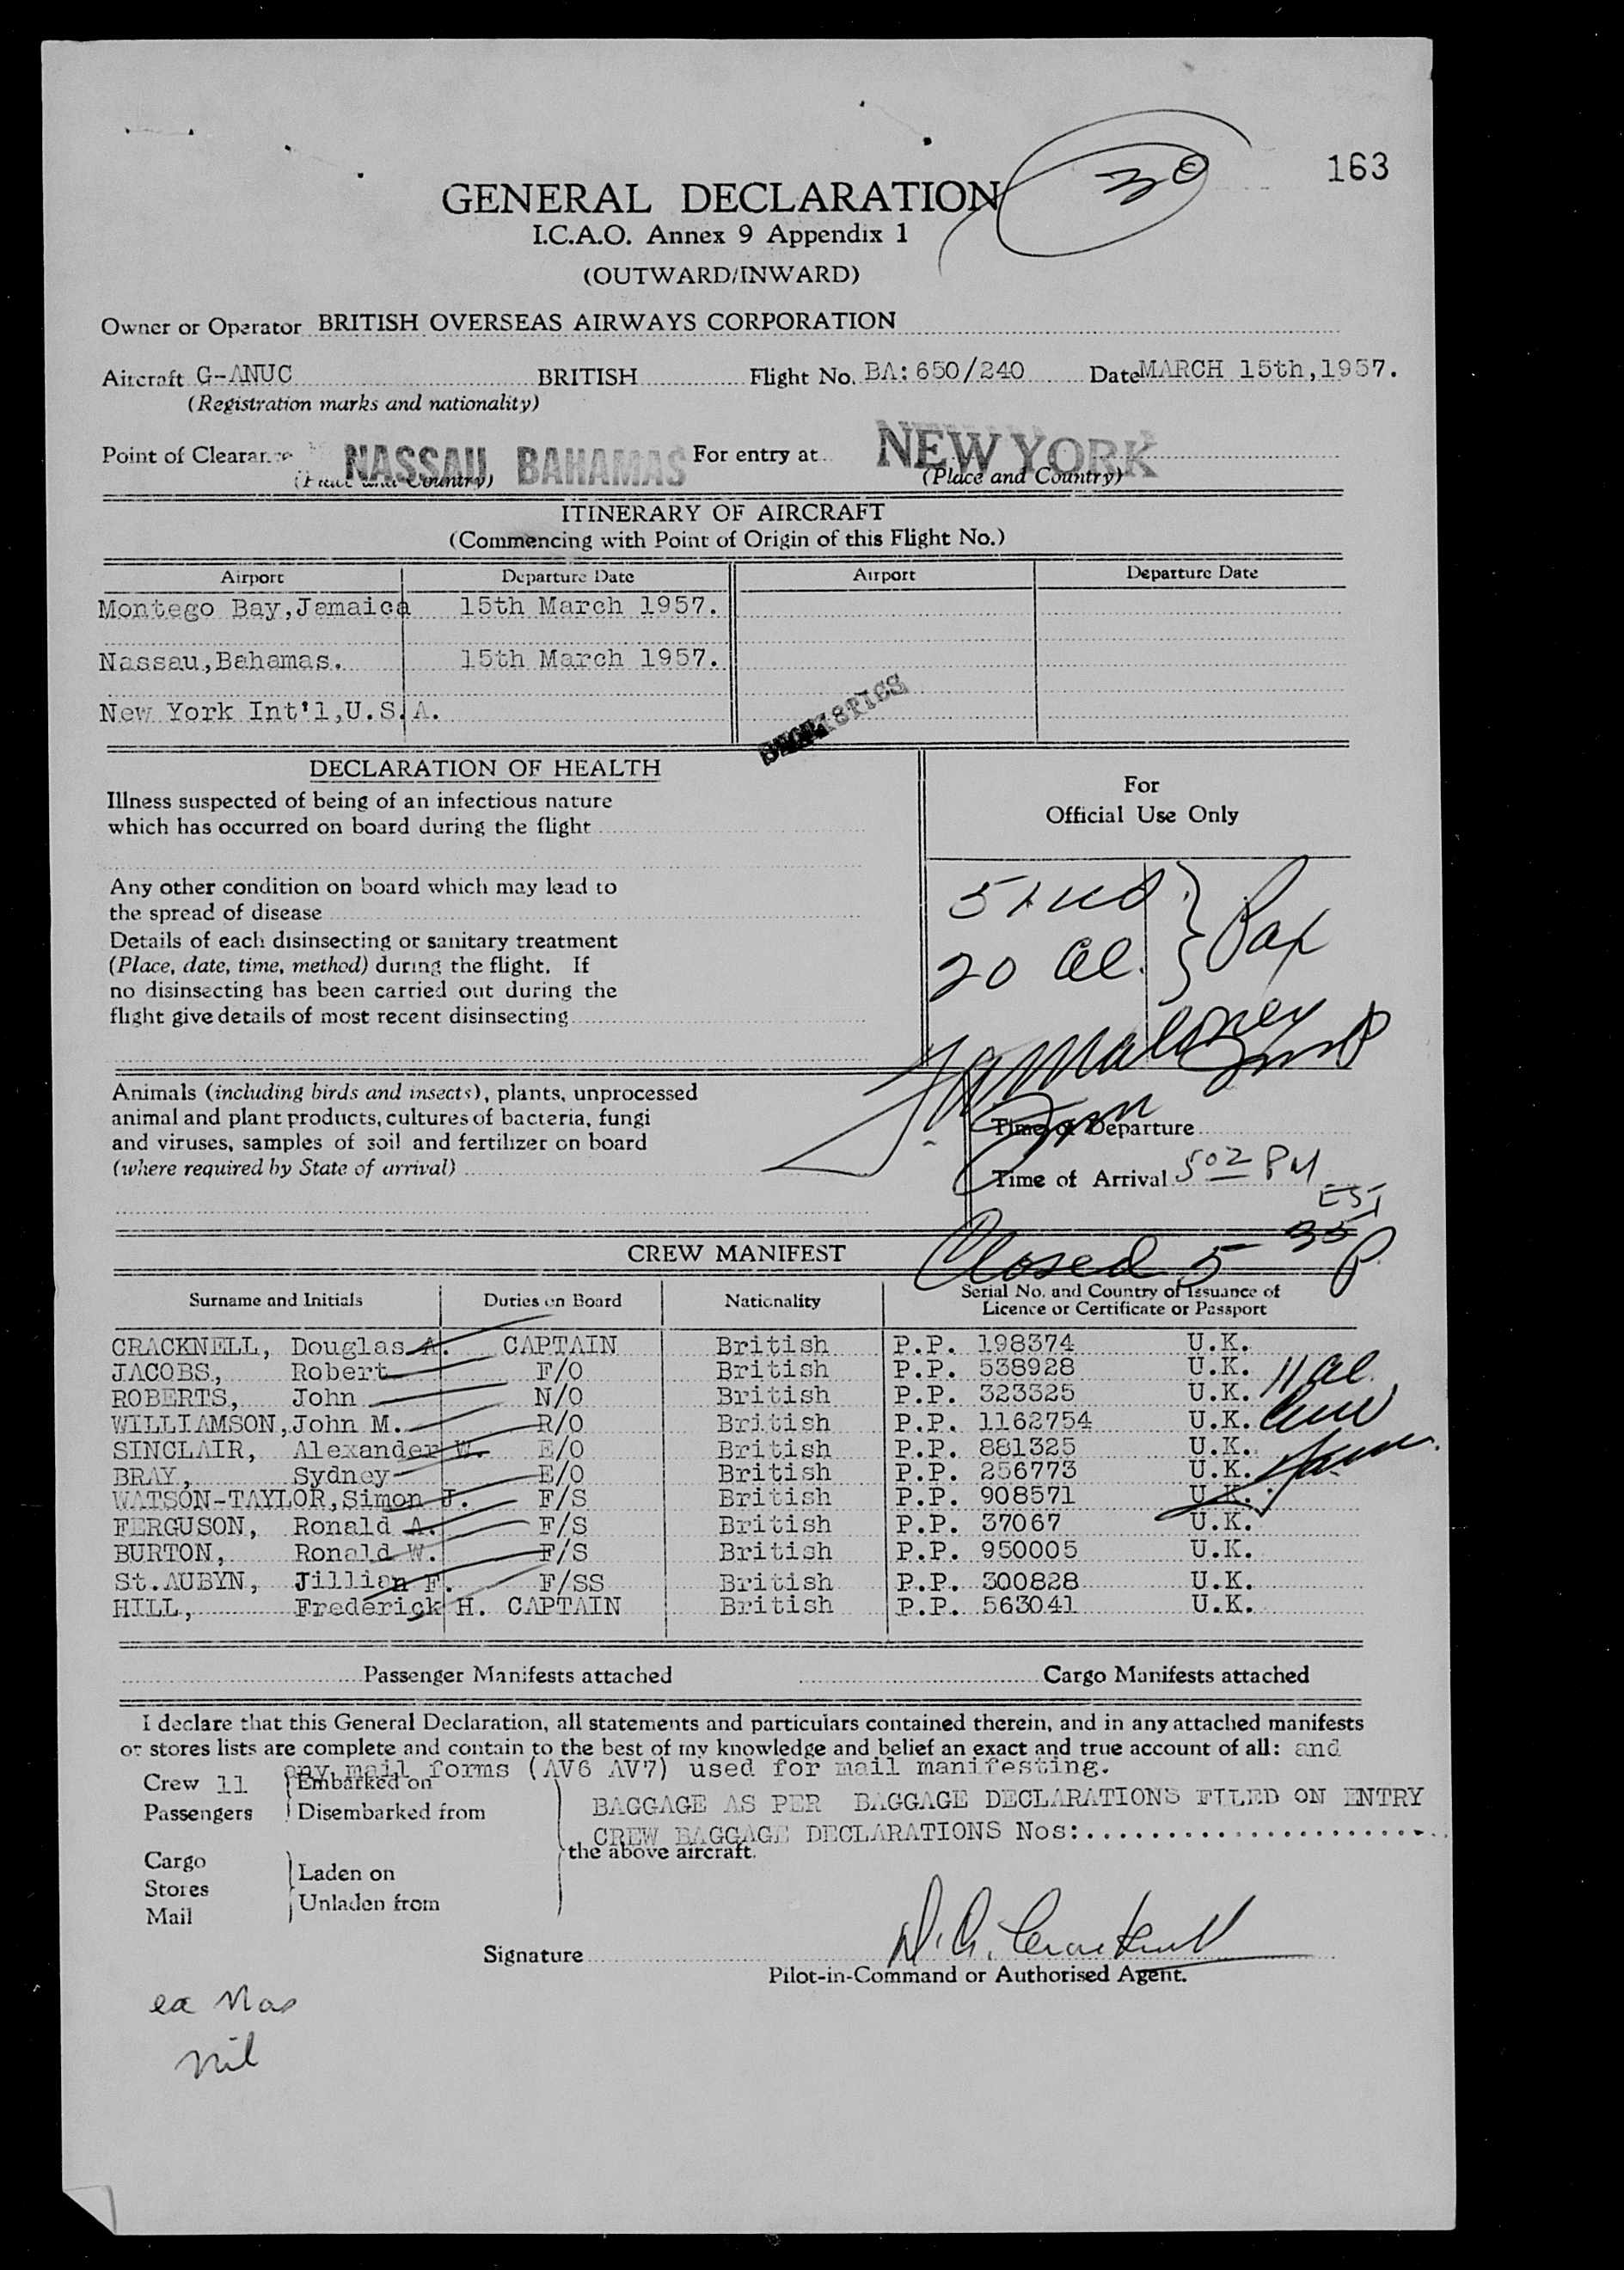 163
30
GENERAL DECLARATION
I.C.A.O. Annex 9 Appendix 1
(OUTWARD/INWARD)
Owner or Operator BRITISH OVERSEAS AIRWAYS CORPORATION
Aircraft G-ANUC BRITISH Flight No. BA:650/240 Date MARCH 15th,1957.
(Registration marks and nationality)
Point of Clearance NASSAU, BAHAMAS For entry at NEW YORK
(Place and Country) (Place and Country)
ITINERARY OF AIRCRAFT
(Commencing with Point of Origin of this Flight No.)
Airport Departure Date Airport Departure Date
Montego Bay,Jamaica 15th March 1957.
Nassau,Bahamas. 15th March 1957.
New York Int'l,U.S.A.
STATISTICS
DECLARATION OF HEALTH
Illness suspected of being of an infectious nature
which has occurred on board during the flight
Any other condition on board which may lead to
the spread of disease
Details of each disinsecting or sanitary treatment
(Place, date, time, method) during the flight. If
no disinsecting has been carried out during the
flight give details of most recent disinsecting
For
Official Use Only
20 al. Pax
Animals (including birds and insects), plants, unprocessed
animal and plant products, cultures of bacteria, fungi
and viruses, samples of soil and fertilizer on board
(where required by State of arrival)
Time of Departure
Time of Arrival 5 02 PM
EST
Closed 5 35 P
CREW MANIFEST
Surname and Initials Duties on Board Nationality Serial No. and Country of Issuance of
Licence or Certificate or Passport
CRACKNELL, Douglas A. CAPTAIN British P.P. 198374 U.K.
JACOBS, Robert F/O British P.P. 538928 U.K.
ROBERTS, John N/O British P.P. 323325 U.K. 11 al
WILLIAMSON, John M. R/O British P.P. 1162754 U.K.
SINCLAIR, Alexander W. E/O British P.P. 881325 U.K.
BRAY, Sydney E/O British P.P. 256773 U.K.
WATSON-TAYLOR, Simon J. F/S British P.P. 908571 U.K.
FERGUSON, Ronald A. F/S British P.P. 37067 U.K.
BURTON, Ronald W. F/S British P.P. 950005 U.K.
St.AUBYN, Jillian F. F/SS British P.P. 300828 U.K.
HILL, Frederick H. CAPTAIN British P.P. 563041 U.K.
Passenger Manifests attached Cargo Manifests attached
I declare that this General Declaration, all statements and particulars contained therein, and in any attached manifests
or stores lists are complete and contain to the best of my knowledge and belief an exact and true account of all: and
any mail forms (AV6 AV7) used for mail manifesting.
Crew 11 Embarked on
Passengers Disembarked from
BAGGAGE AS PER BAGGAGE DECLARATIONS FILED ON ENTRY
CREW BAGGAGE DECLARATIONS Nos:........................
the above aircraft.
Cargo
Stores
Mail
Laden on
Unladen from
Signature D. A. Cracknell
Pilot-in-Command or Authorised Agent.
ex Nas
nil